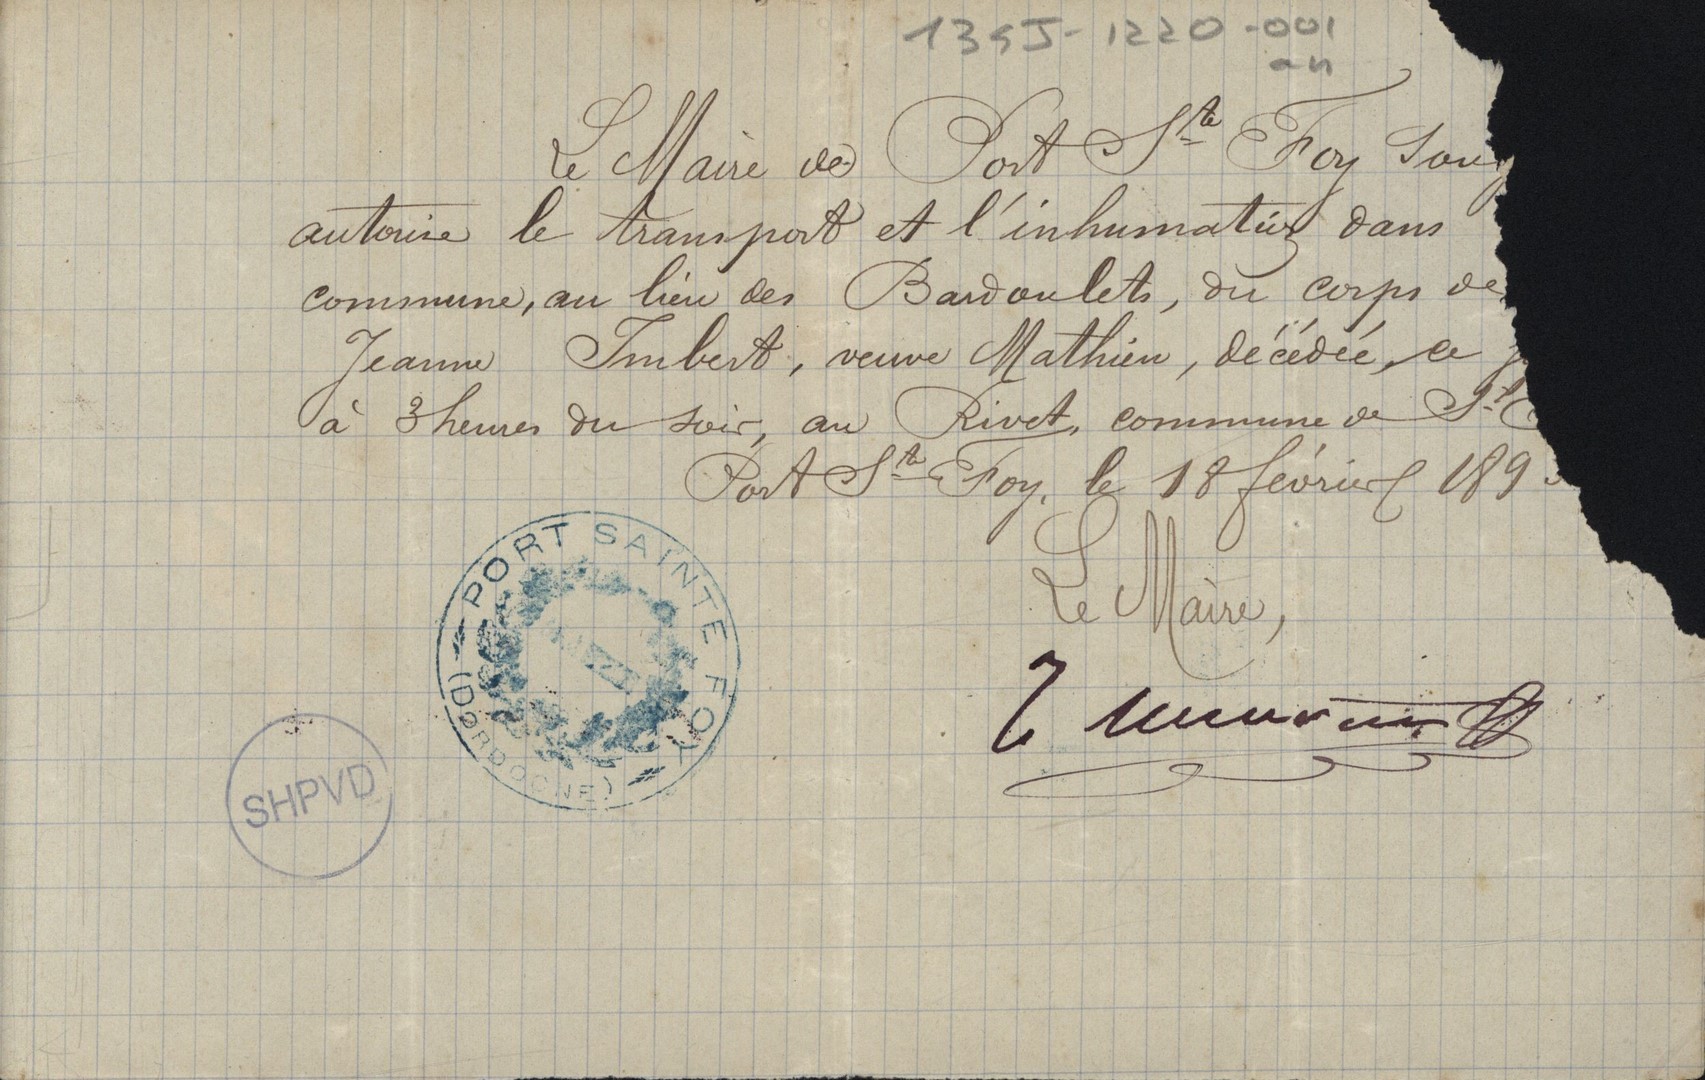 13SJ-1220-001
an
Le Maire de Port Ste Foy sous
autorise le transport et l'inhumation dans
commune, au lieu des Bardoulets, du corps de
Jeanne Imbert, veuve Mathieu, décédée, ce
à 3 heures du soir, au Rivet, commune de St
Port Ste Foy, le 18 février 189
Le Maire,
PORT SAINTE FOY
(DORDOGNE)
SHPVD